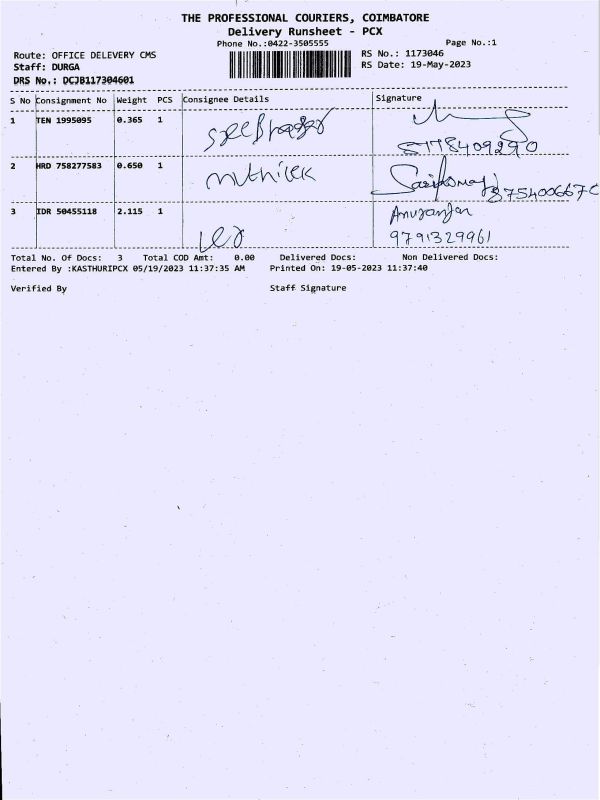 THE PROFESSIONAL COURIERS, COIMBATORE
Delivery Runsheet - PCX
Phone No.:0422-3505555 Page No.:1
Route: OFFICE DELEVERY CMS RS No.: 1173046
Staff: DURGA RS Date: 19-May-2023
DRS No.: DCJB117304601
S No Consignment No Weight PCS Consignee Details Signature
1 TEN 1995095 0.365 1
2 HRD 758277583 0.650 1
3 IDR 50455118 2.115 1 Anuranjan
9791329961
Total No. Of Docs: 3 Total COD Amt: 0.00 Delivered Docs: Non Delivered Docs:
Entered By :KASTHURIPCX 05/19/2023 11:37:35 AM Printed On: 19-05-2023 11:37:40
Verified By Staff Signature